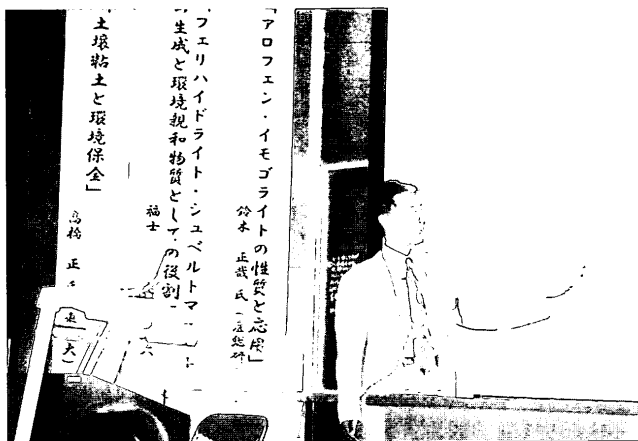 「アロフェン・イモゴライトの性質と応用」
鈴木 正哉 氏（産総研
フェリハイドライト・シュベルトマ
生成と環境親和物質としての役割
福士
土壌粘土と環境保全」
高橋 正